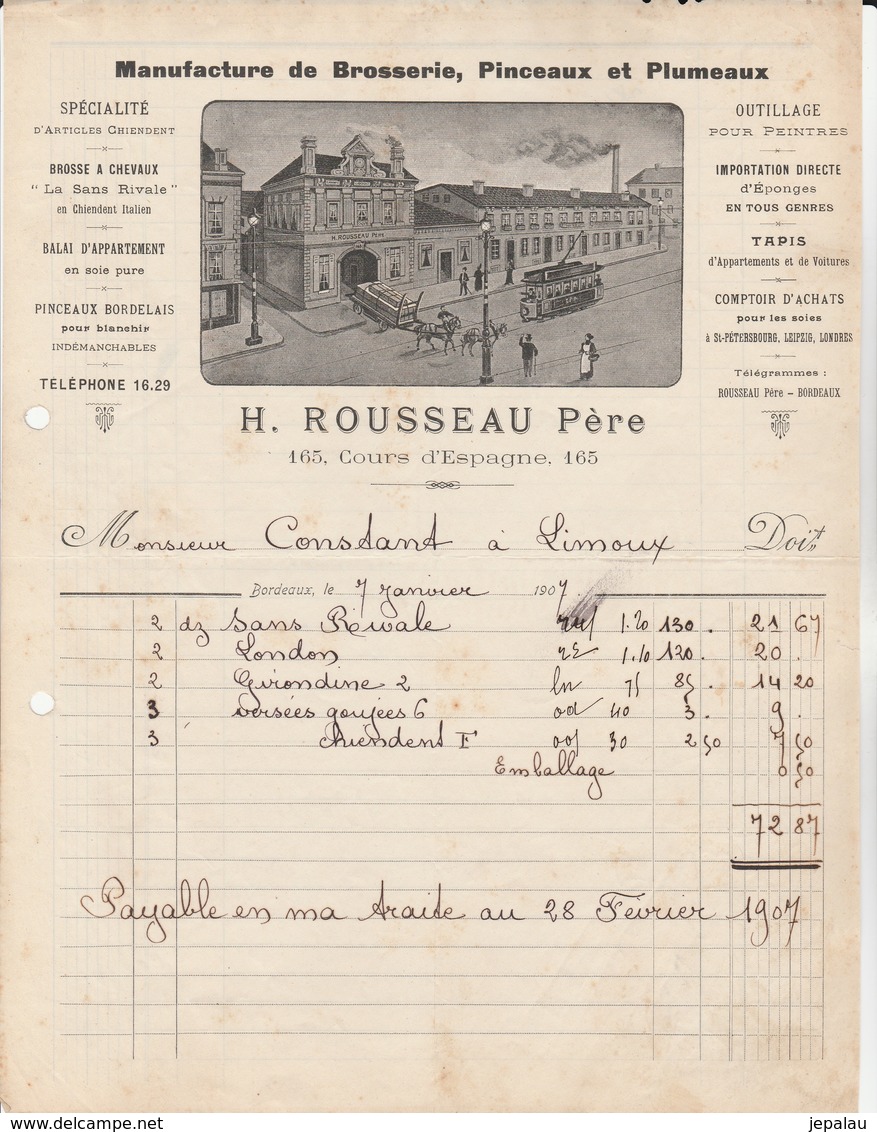 Manufacture de Brosserie, Pinceaux et Plumeaux
SPÉCIALITÉ
D'ARTICLES CHIENDENT
BROSSE A CHEVAUX
"La Sans Rivale"
en Chiendent Italien
BALAI D'APPARTEMENT
en soie pure
PINCEAUX BORDELAIS
pour blanchir
INDÉMANCHABLES
TÉLÉPHONE 16.29
H. ROUSSEAU Père
OUTILLAGE
POUR PEINTRES
IMPORTATION DIRECTE
d'Éponges
EN TOUS GENRES
TAPIS
d'Appartements et de Voitures
COMPTOIR D'ACHATS
pour les soies
à St-PÉTERSBOURG, LEIPZIG, LONDRES
Télégrammes :
ROUSSEAU Père – BORDEAUX
H. ROUSSEAU Père
165, Cours d'Espagne, 165
Monsieur Constant à Limoux Doit
Bordeaux, le 7 Janvier 1907
2 dz Sans Rivale 1.20 130 . 21 67
2 London 1.10 120 . 20 .
2 Girondine 2 75 85 . 14 20
3 versées goujées 6 40 3 . 9 .
3 chiendent F 30 2 50 7 50
Emballage 0 50
72 87
Payable en ma traite au 28 Février 1907
jepalau